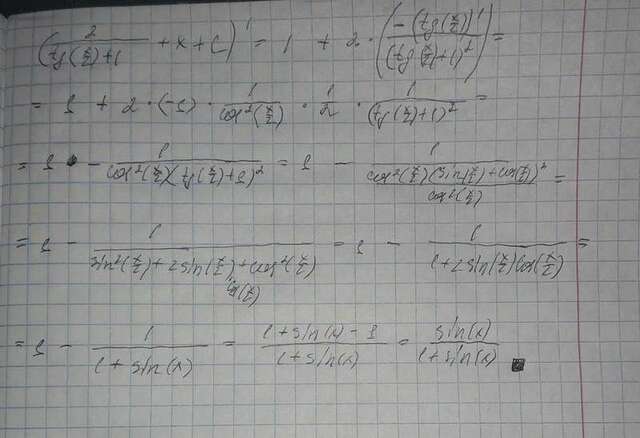 (2/(tg(x/2)+1) + x + C)' = 1 + 2·(-(tg(x/2))'/(tg(x/2)+1)²) =
= 1 + 2·(-1)·1/cos²(x/2)·1/2·1/(tg(x/2)+1)² =
= 1 - 1/(cos²(x/2)(tg(x/2)+1)²) = 1 - 1/(cos²(x/2)(sin(x/2)+cos(x/2))²/cos²(x/2)) =
= 1 - 1/(sin²(x/2)+2sin(x/2)cos(x/2)+cos²(x/2)) = 1 - 1/(1+2sin(x/2)cos(x/2)) =
= 1 - 1/(1+sin(x)) = (1+sin(x)-1)/(1+sin(x)) = sin(x)/(1+sin(x)) ■